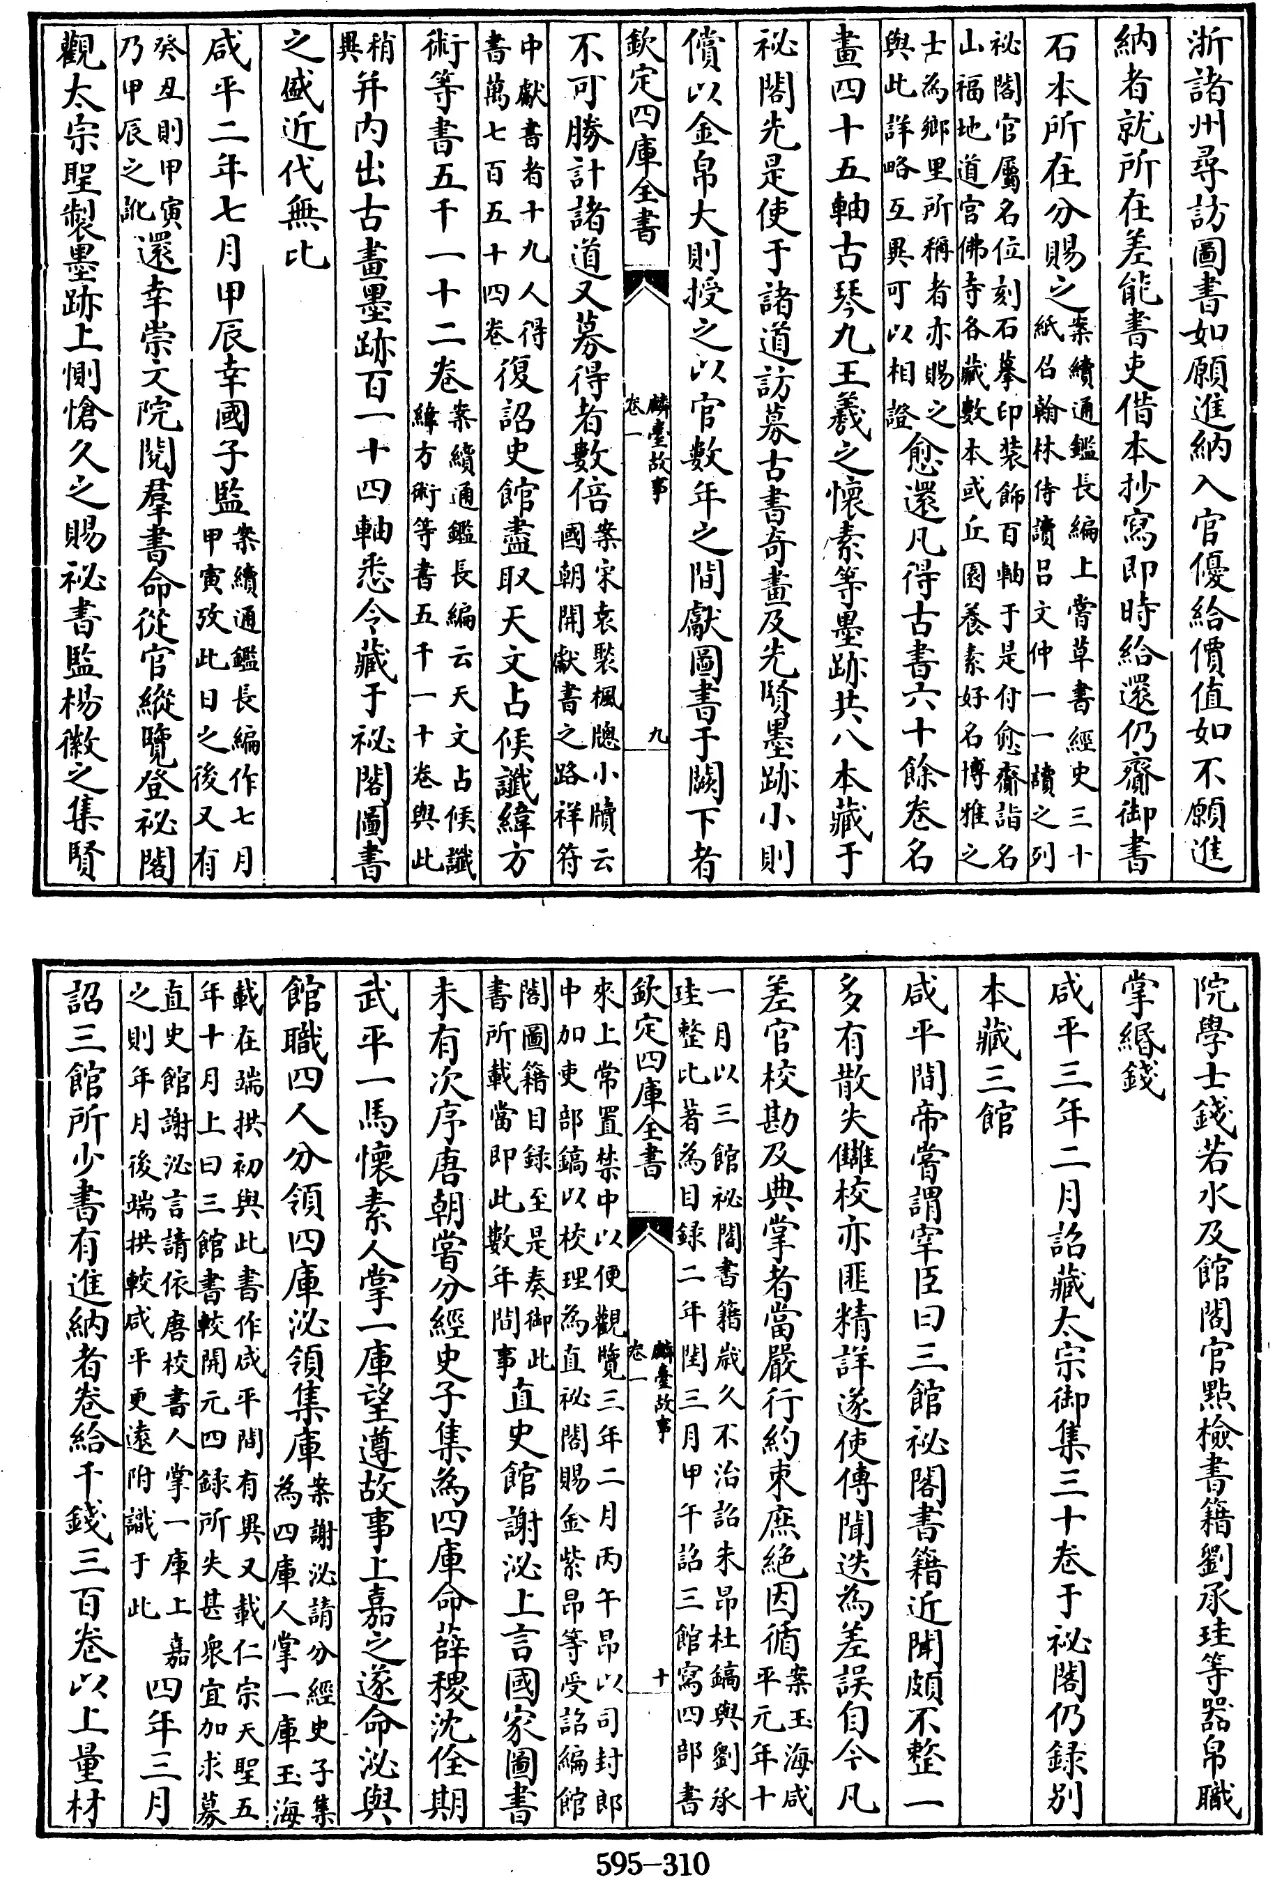 浙諸州尋訪圖書如願進納入官優給價值如不願進
納者就所在差能書吏借本抄寫即時給還仍齎御書
石本所在分賜之案續通鑑長編上嘗草書經史三十
紙召翰林侍讀呂文仲一一讀之列
祕閣官屬名位刻石摹印装飾百軸于是付愈齎詣名
山福地道宫佛寺各藏數本或丘園養素好名博雅之
士為鄉里所稱者亦賜之
與此詳略互異可以相證愈還凡得古書六十餘卷名
畫四十五軸古琴九王羲之懷素等墨跡共八本藏于
祕閣先是使于諸道訪募古書奇畫及先賢墨跡小則
償以金帛大則授之以官數年之間獻圖書于闕下者
欽定四庫全書
麟臺故事
卷一
九
不可勝計諸道又募得者數倍案宋袁褧楓牕小牘云
國朝開獻書之路祥符
中獻書者十九人得
書萬七百五十四卷復詔史館盡取天文占候讖緯方
術等書五千一十二卷案續通鑑長編云天文占候讖
緯方術等書五千一十卷與此
稍
異并内出古畫墨跡百一十四軸悉令藏于祕閣圖書
之盛近代無比
咸平二年七月甲辰幸國子監案續通鑑長編作七月
甲寅攷此日之後又有
癸丑則甲寅
乃甲辰之訛還幸崇文院閱羣書命從官縱覽登祕閣
觀太宗聖製墨跡上惻愴久之賜祕書監楊徽之集賢
院學士錢若水及館閣官點檢書籍劉承珪等器帛職
掌緡錢
咸平三年二月詔藏太宗御集三十卷于祕閣仍録别
本藏三館
咸平間帝嘗謂宰臣曰三館祕閣書籍近聞頗不整一
多有散失讎校亦匪精詳遂使傳聞迭為差誤自今凡
差官校勘及典掌者當嚴行約束庶絶因循案玉海咸
平元年十
一月以三館祕閣書籍歲久不治詔朱昂杜鎬與劉承
珪整比著為目録二年閏三月甲午詔三館寫四部書
欽定四庫全書
麟臺故事
卷一
十
來上常置禁中以便觀覽三年二月丙午昂以司封郎
中加吏部鎬以校理為直祕閣賜金紫昂等受詔編館
閣圖籍目録至是奏御此
書所載當即此數年間事直史館謝泌上言國家圖書
未有次序唐朝嘗分經史子集為四庫命薛稷沈佺期
武平一馬懷素人掌一庫望遵故事上嘉之遂命泌與
館職四人分領四庫泌領集庫案謝泌請分經史子集
為四庫人掌一庫玉海
載在端拱初與此書作咸平間有異又載仁宗天聖五
年十月上曰三館書較開元四録所失甚衆宜加求募
直史館謝泌言請依唐校書人掌一庫上嘉
之則年月後端拱較咸平更遠附識于此四年三月
詔三館所少書有進納者卷給千錢三百卷以上量材
595-310